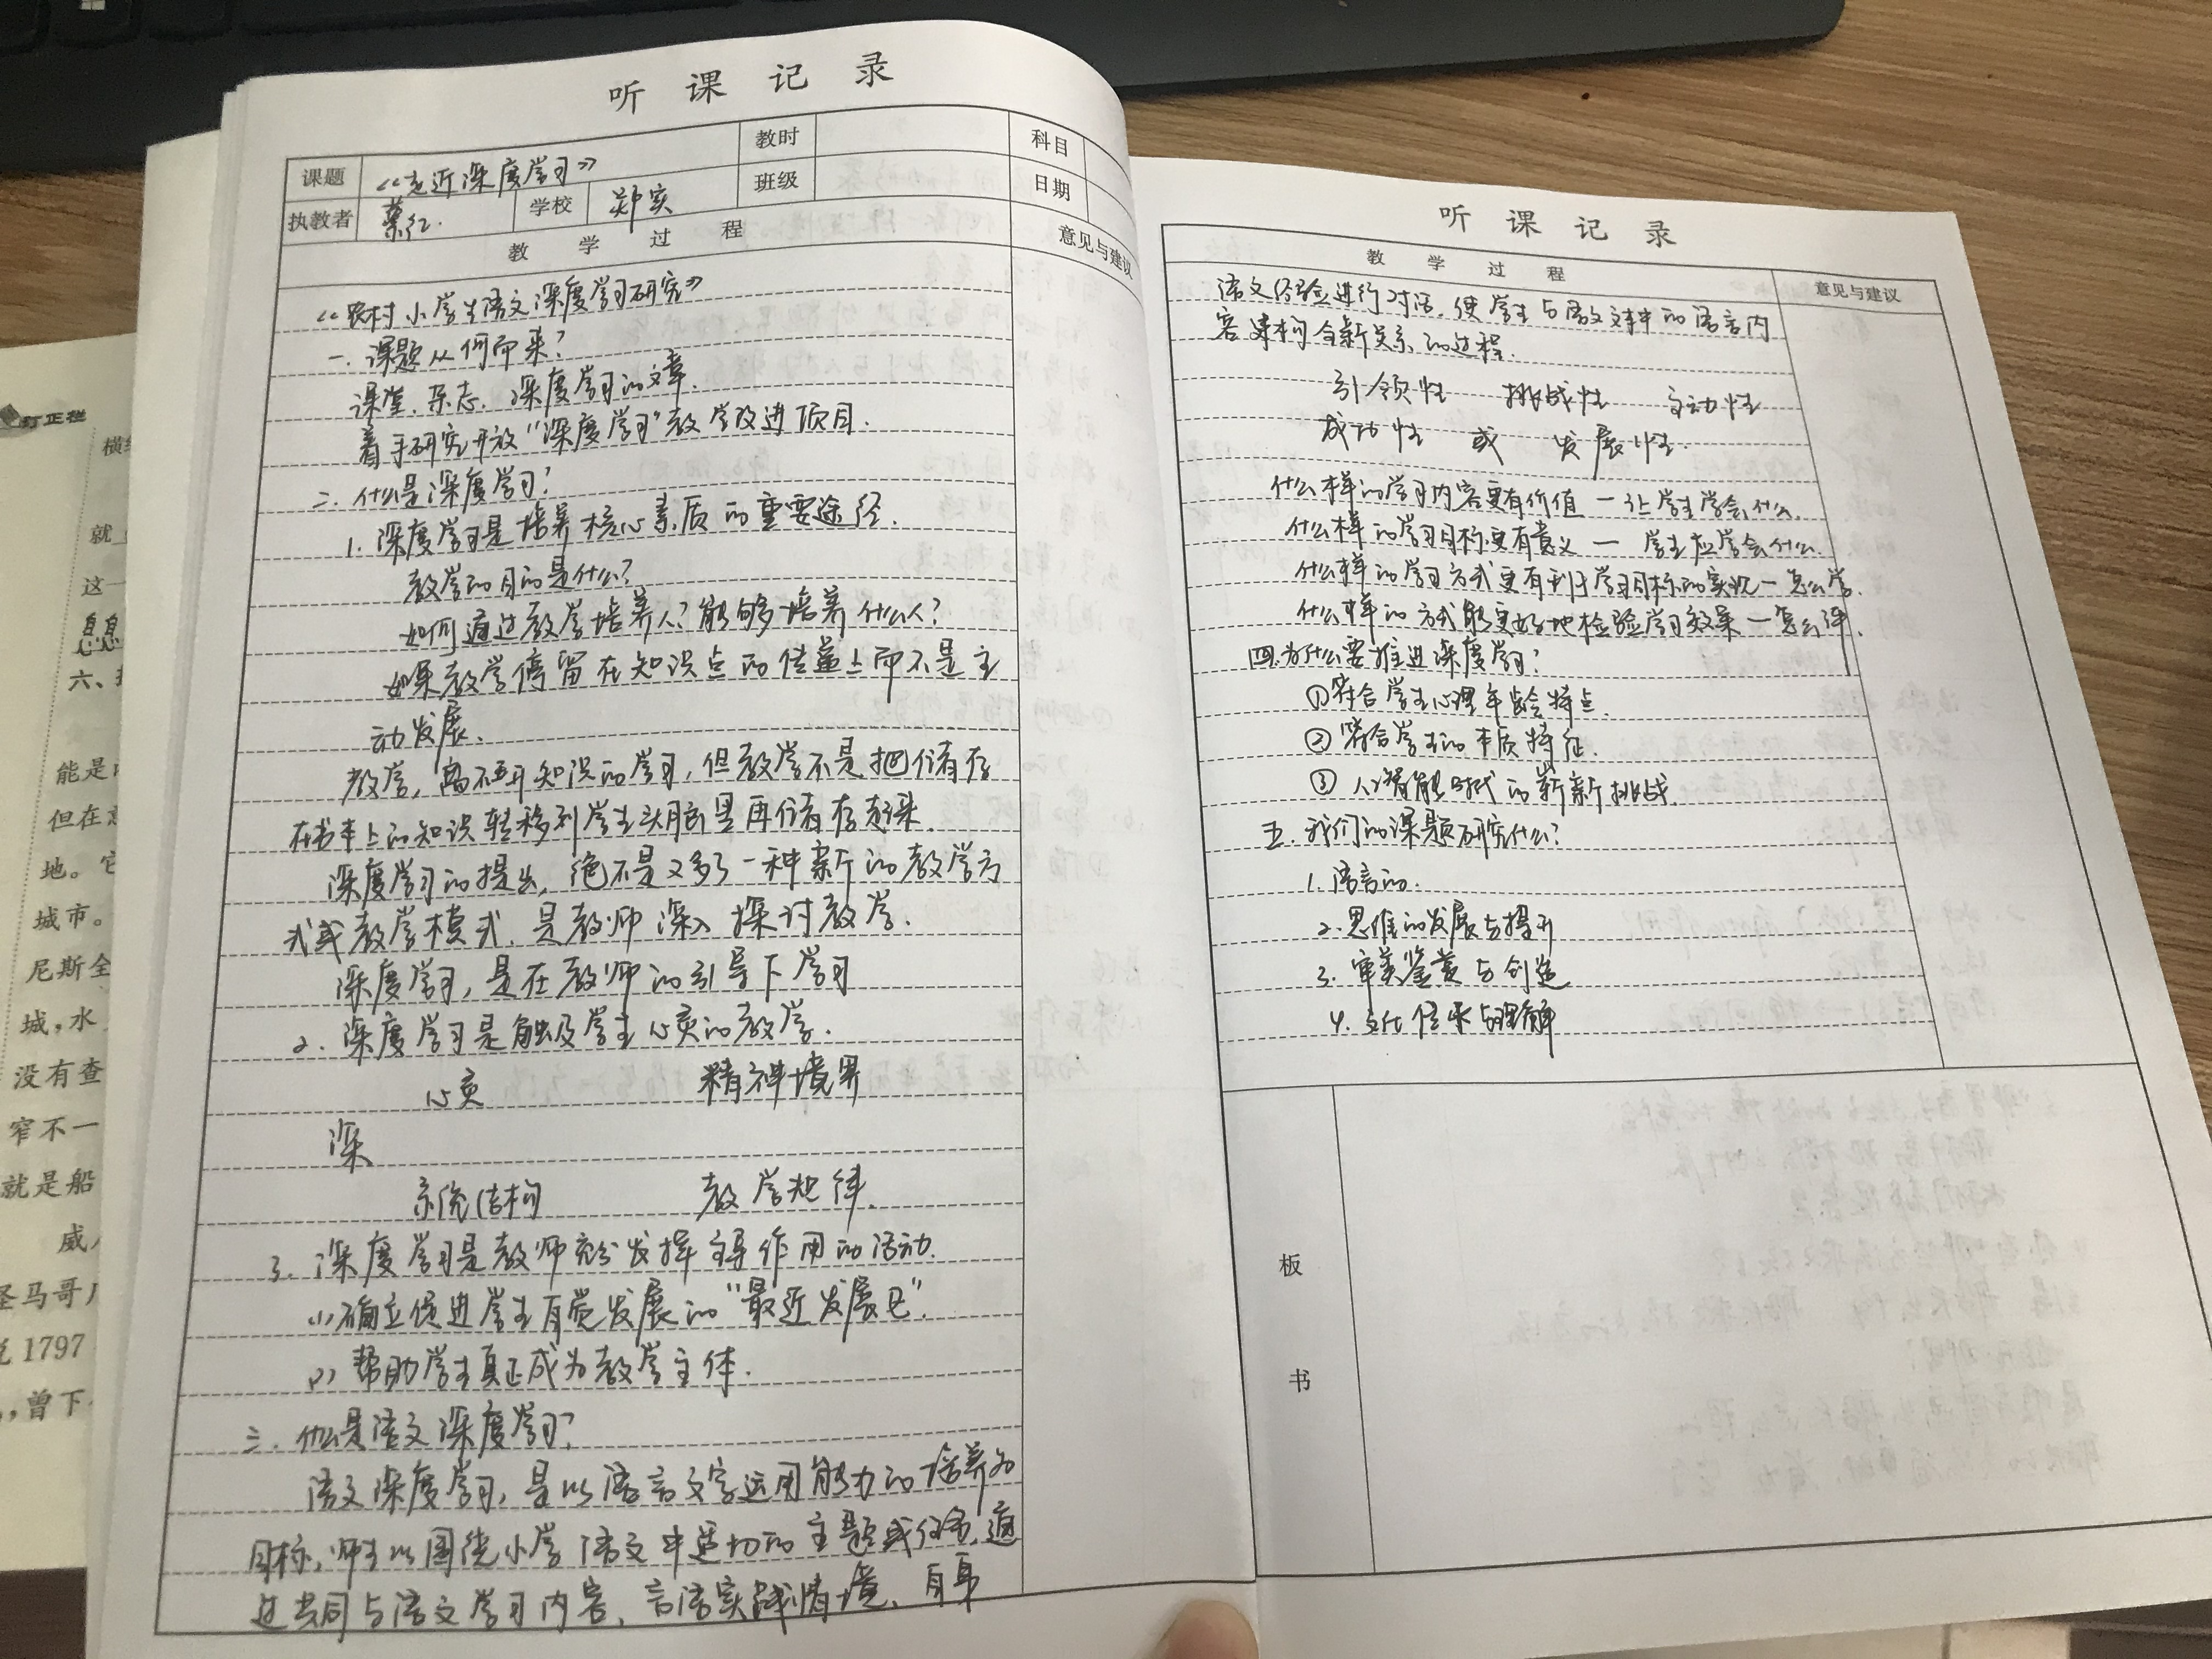 听课记录
课题 《走近深度学习》 教时 科目
执教者 蔡红. 学校 郑实 班级 日期
教学过程 意见与建议
《农村小学生语文深度学习研究》
一.课题从何而来?
课堂.杂志.深度学习的文章.
着手研究开放"深度学习"教学改进项目.
二.什么是深度学习?
1.深度学习是培养核心素质的重要途径.
教学的目的是什么?
如何通过教学培养人?能够培养什么人?
如果教学停留在知识点的传量上而不是主
动发展.
教学,离不开知识的学习,但教学不是把储存
在书本上的知识转移到学生头脑里再储存起来.
深度学习的提出,绝不是又多了一种新的教学方
式或教学模式.是教师深入探讨教学.
深度学习,是在教师的引导下学习
2.深度学习是触及学生心灵的教学.
心灵 精神境界
深
系统结构 教学规律.
3.深度学习是教师充分发挥主导作用的活动.
(1)确立促进学生自觉发展的"最近发展区".
(2)帮助学生真正成为教学主体.
三.什么是语文深度学习?
语文深度学习,是以语言文字运用能力的培养为
目标,师生以围绕小学语文中适切的主题或任务,通
过共同与语文学习内容、言语实践情境、自身
听课记录
教学过程 意见与建议
语文经验进行对话,使学生与语文文本中的语言内
容建构全新关系的过程.
引领性 挑战性 主动性
成功性 或 发展性.
什么样的学习内容更有价值—让学生学会什么.
什么样的学习目标更有意义—学生应学会什么.
什么样的学习方式更有利于学习目标的实现—怎么学.
什么样的方式能更好地检验学习效果—怎么评.
四.为什么要推进深度学习?
①符合学生心理年龄特点.
②符合学生的本质特征.
③人工智能时代的崭新挑战.
五.我们的课题研究什么?
1.语言的.
2.思维的发展与提升
3.审美鉴赏与创造
4.文化传承与理解
板
书
打正栏
就
这一
六、
能是
但在
地。它
城市。
尼斯全
城,水
没有查
窄不一
就是船
威
圣马哥
1797
,曾下